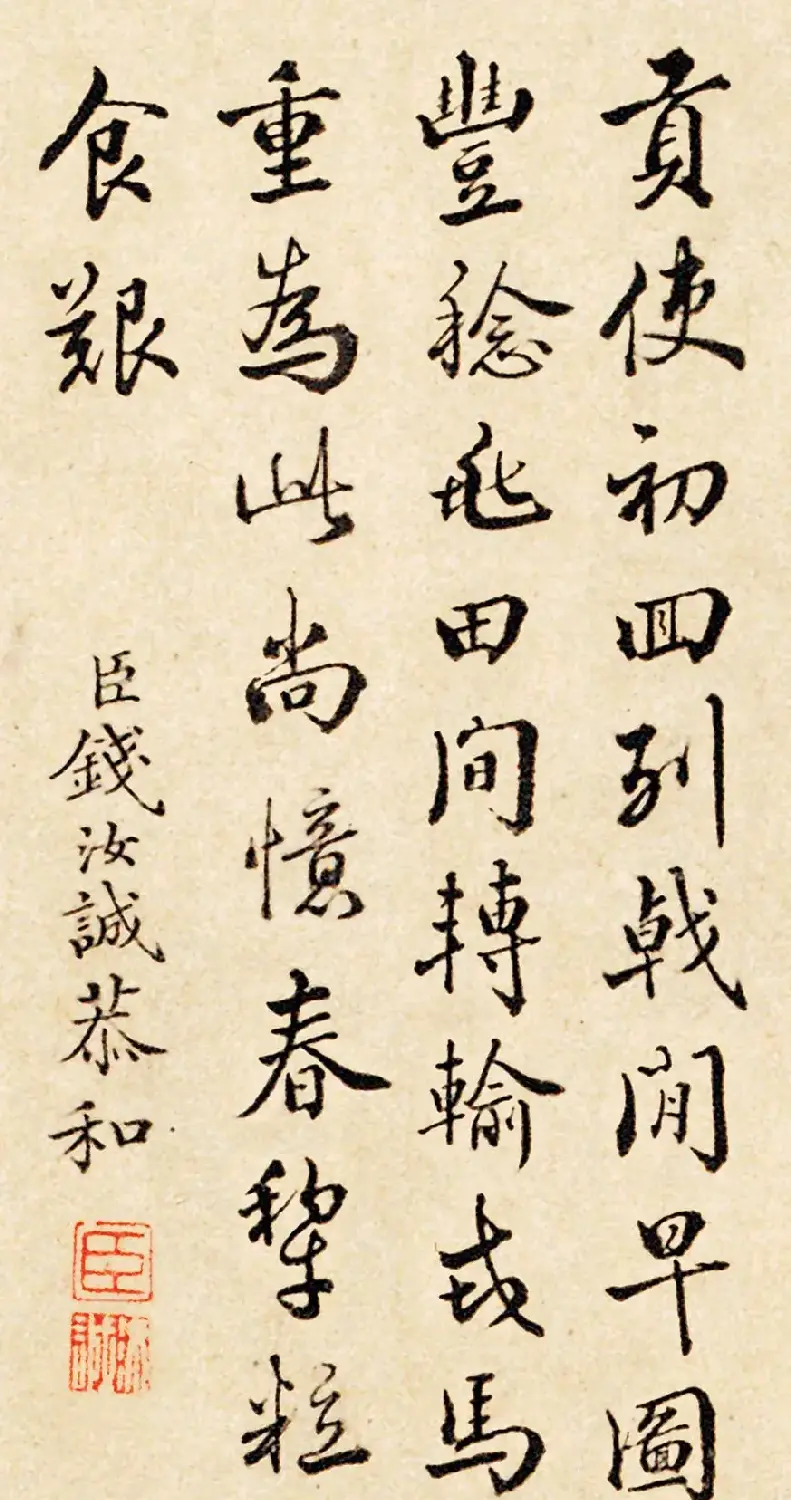 貢使初囬列戟閒早圖
豐稔田間轉輸戎馬
重為此尚憶春犂粒
食艱
臣錢汝誠恭和
臣